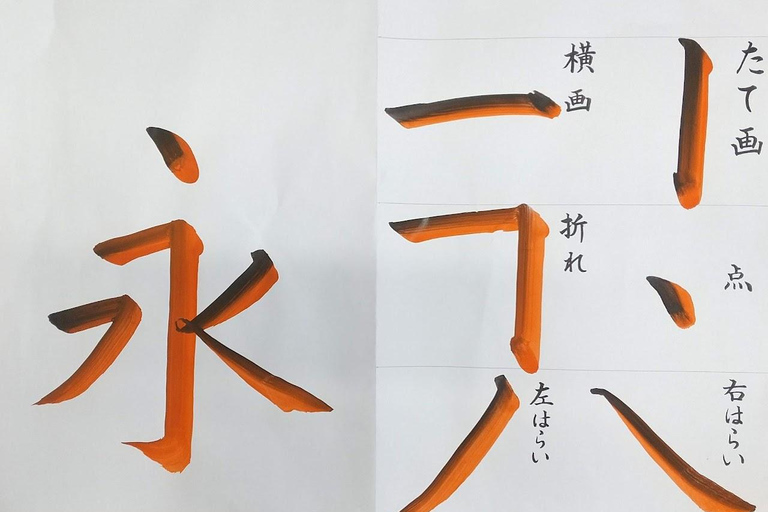 永
たて画
横画
点
折れ
右はらい
左はらい